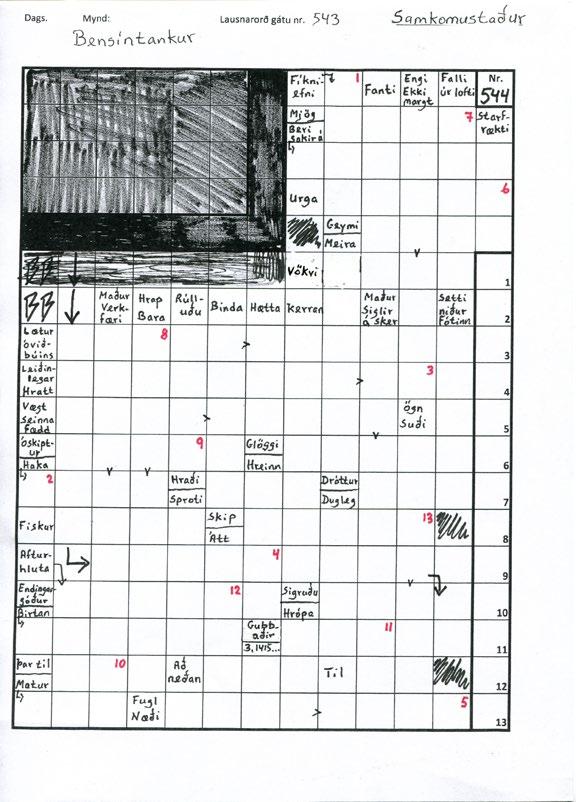 Dags. Mynd: Lausnarorð gátu nr. 543 Samkomustaður
Bensíntankur
Fíkni-
efni
1
Fanti
Engi
Ekki
margt
Falli
úr lofti
Nr.
544
Mjög
Beri
sakir á
7
Starf-
rækti
Urga
6
Geymi
Meira
Vökvi
1
Maður
Verk-
færi
Hrap
Bara
Rúll-
uðu
Binda
Hætta
Kerran
Maður
Siglir
á sker
Setti
niður
Fótinn
2
Lætur
óvið-
búins
8
3
Leiðin-
legar
Hratt
3
4
Vægt
Seinna
fædd
Ögn
Suði
5
Óskipt-
ur
Haka
9
Glöggi
Hreinn
6
2
Hraði
Sproti
Dróttur
Dugleg
7
Fiskur
Skip
Átt
13
8
Aftur-
hluta
4
9
Endingar-
góður
Birtan
12
Sigruðu
Hrópa
10
Gubb-
aðir
3,1415...
11
11
Þar til
Matur
10
Að
neðan
Til
12
Fugl
Næði
5
13